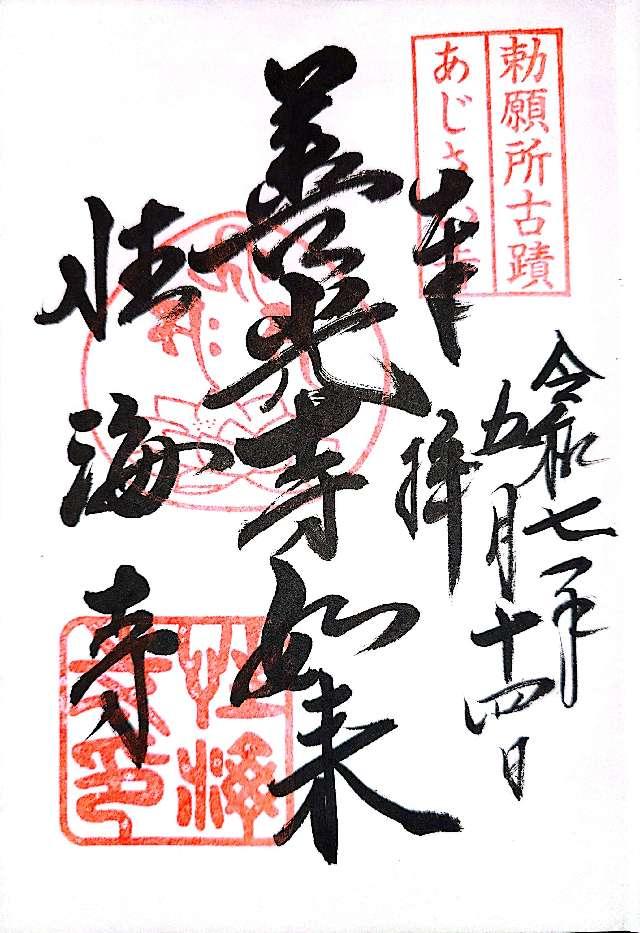 勅願所古蹟
あじさい寺
奉拝
令和七年
五月十四日
善光寺如来
性海寺
性海寺印